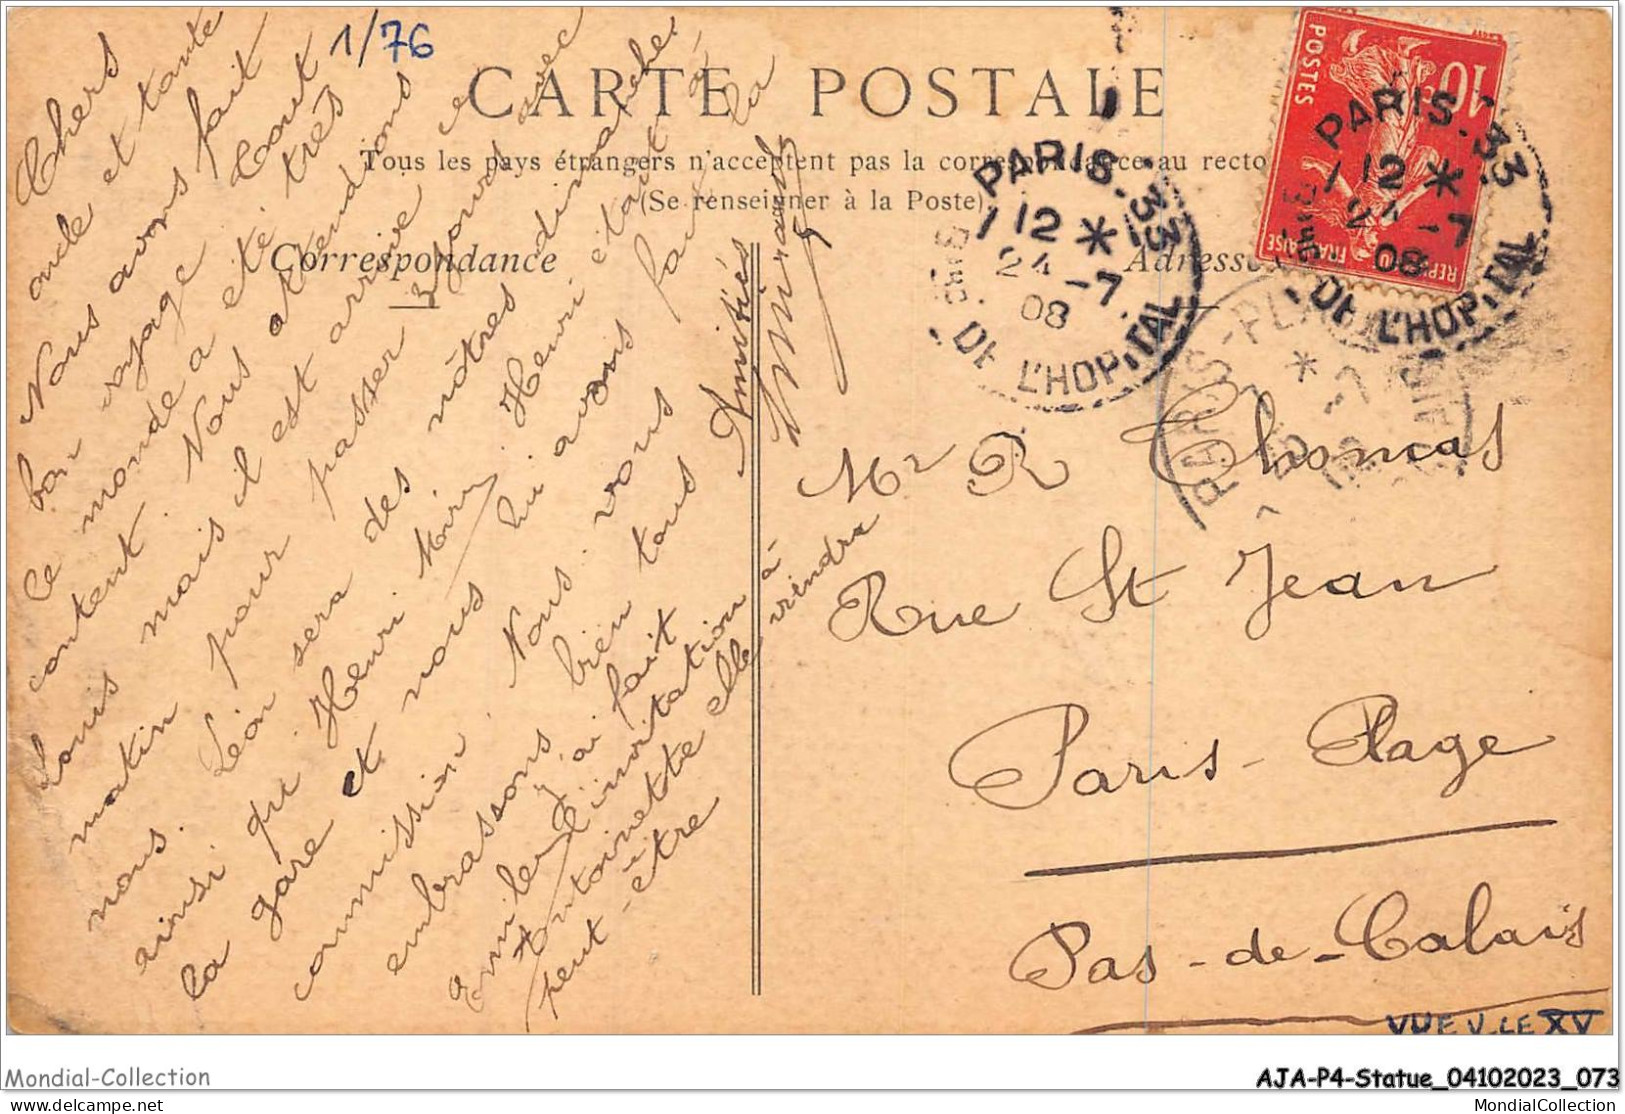 1/76
CARTE POSTALE
Tous les pays étrangers n'acceptent pas la correspondance au recto
(Se renseigner à la Poste)
Correspondance
Adresse
Chers
oncle et tante
Nous avons fait
bon voyage tout
le monde a été très
content. Nous attendions
Louis mais il est arrivé ce
matin pour passer 3 jours avec
nous. Léon sera des nôtres dimanche
ainsi qu'Henri
la gare et Henri était à
et nous lui avons fait la
commission. Nous vous
embrassons bien tous
Amitiés
Emile j'ai fait
l'invitation à
Antoinette elle viendra
peut-être
Mr R Thomas
Rue St Jean
Paris-Plage
Pas-de-Calais
POSTES
10
REPUBLIQUE FRANCAISE
PARIS-33
12 *
24 -7
08
DE L'HOPITAL
PARIS-33
12 *
24 -7
08
DE L'HOPITAL
PARIS-PLAGE
VUE V. LE XV
Mondial-Collection
AJA-P4-Statue_04102023_073
www.delcampe.net
MondialCollection